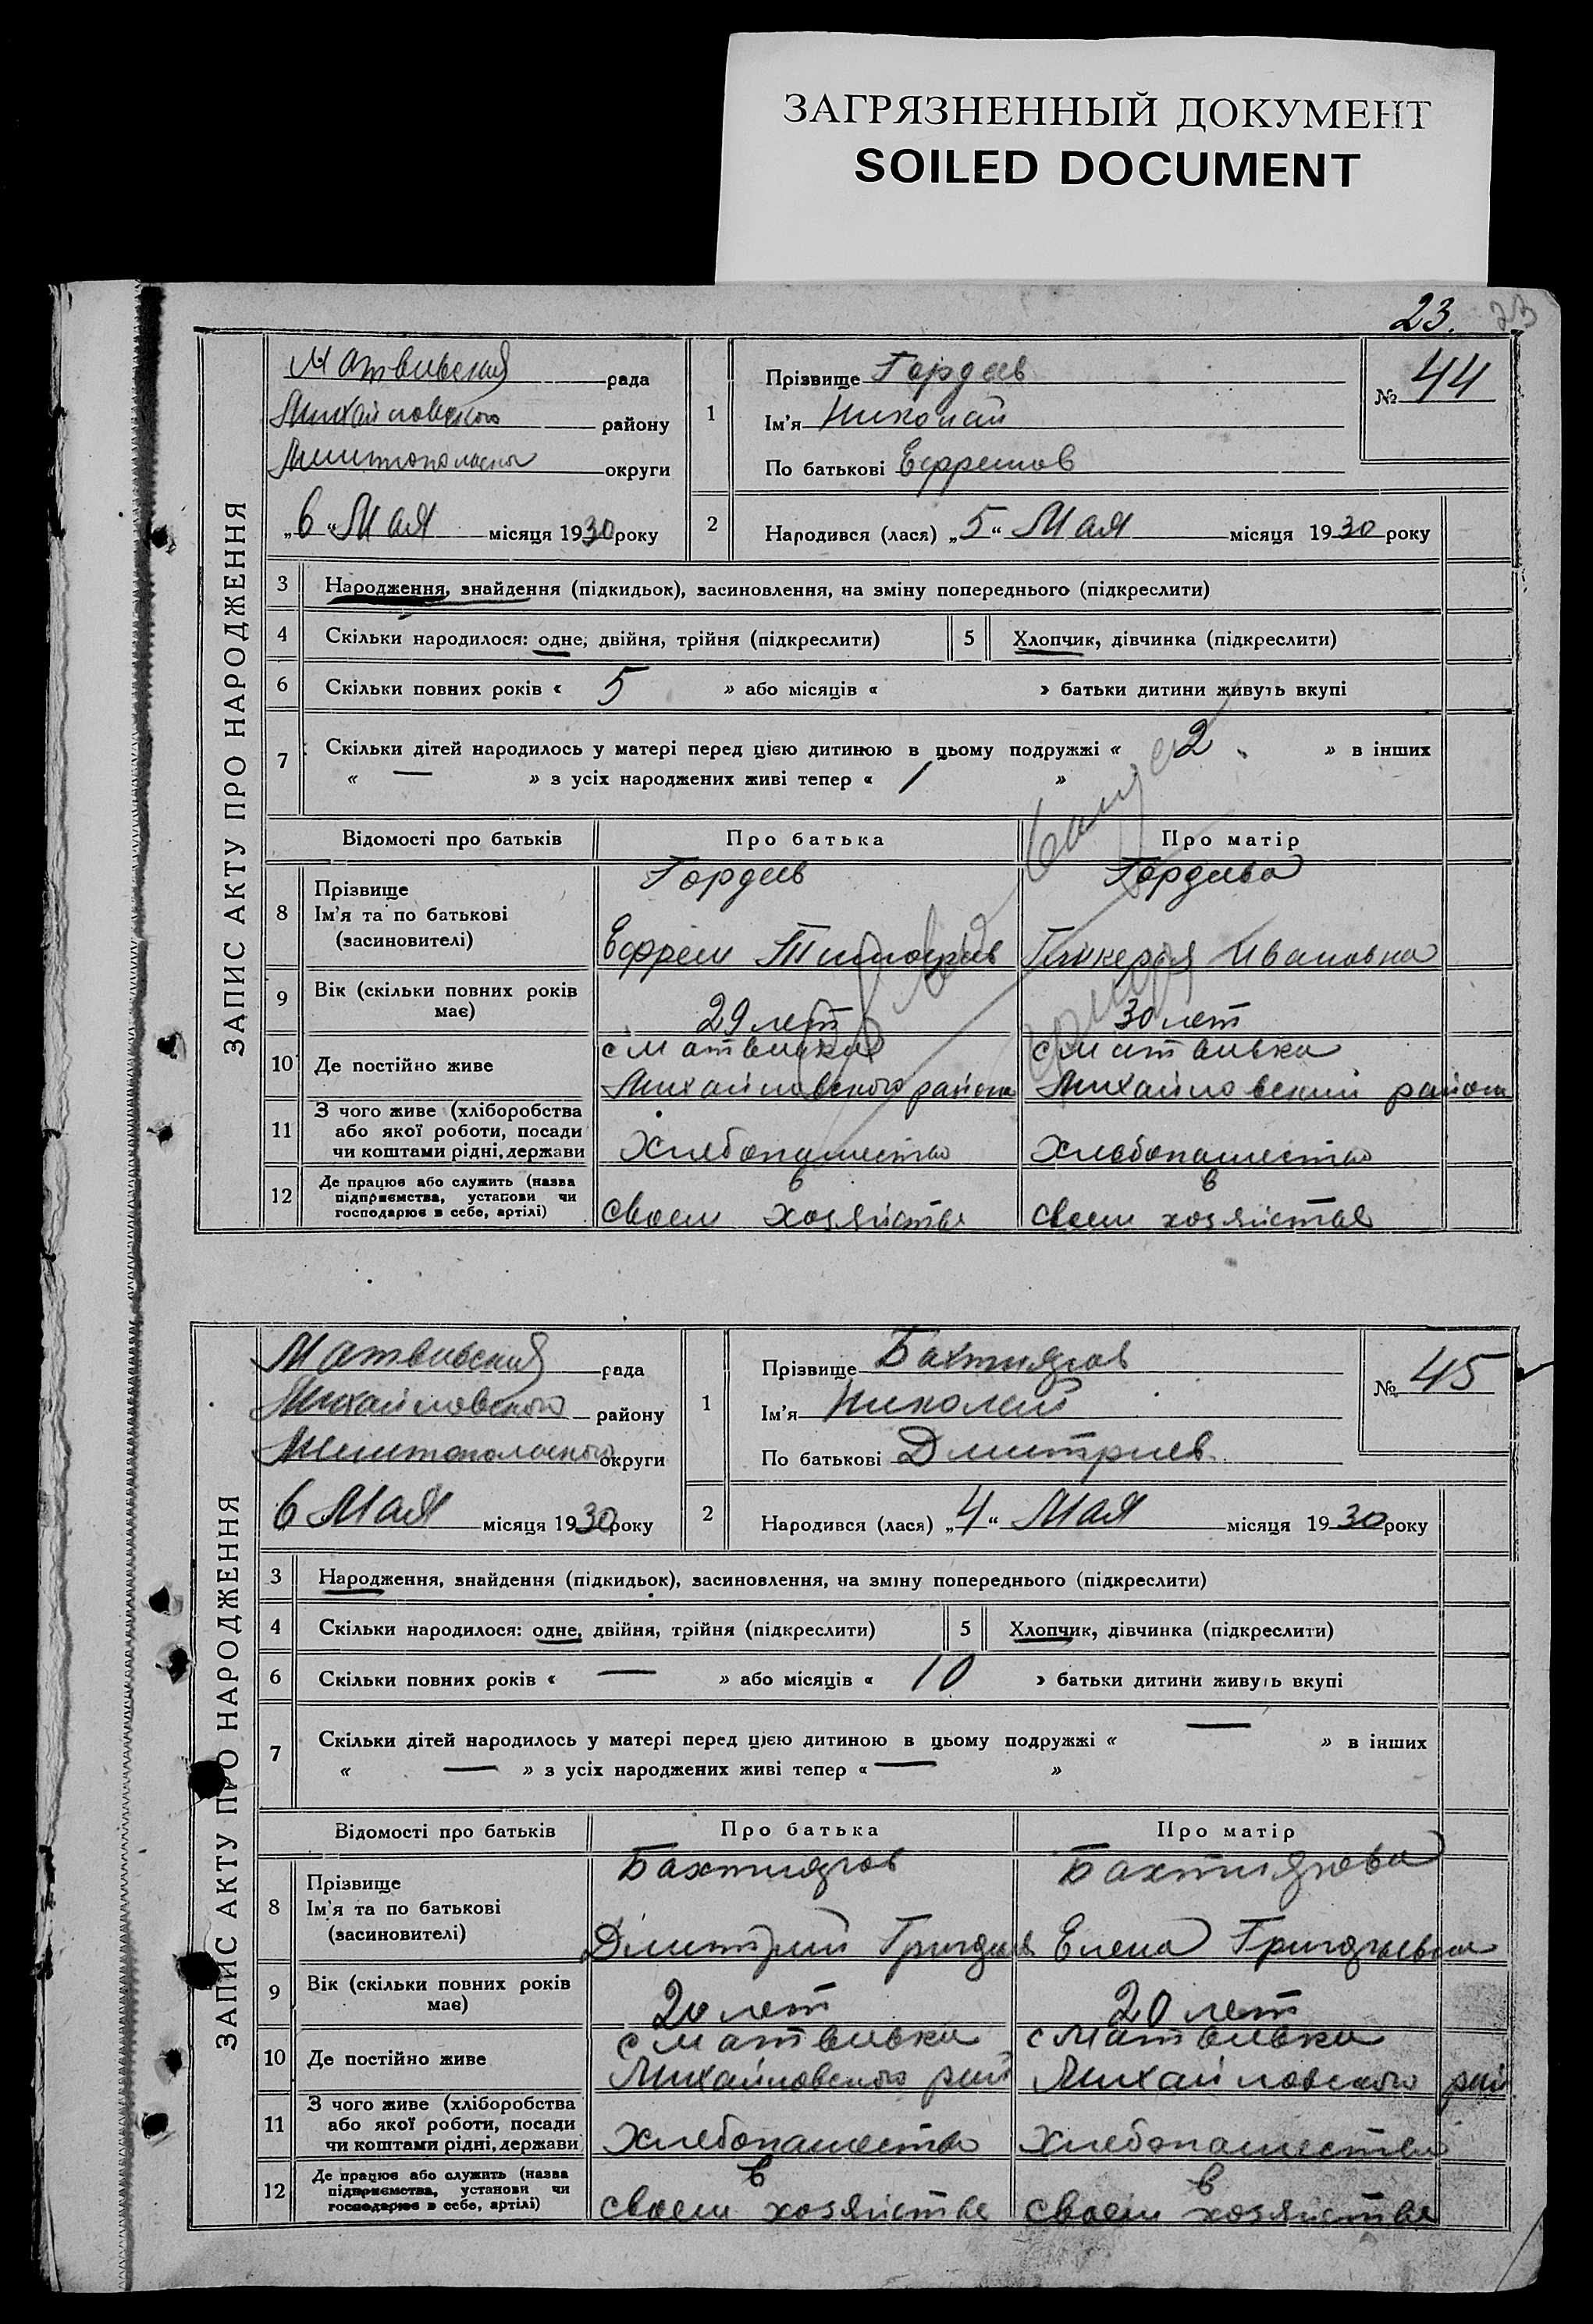 ЗАГРЯЗНЕННЫЙ ДОКУМЕНТ
SOILED DOCUMENT
23. 23
ЗАПИС АКТУ ПРО НАРОДЖЕННЯ
Матвивская рада
Михайловского району
округи
„6“ Мая місяця 1930 року
1 Прізвище Гордеев
Ім'я Николай
По батькові Ефремов
№ 44
2 Народився (лася) „5“ Мая місяця 1930 року
3 Народження, знайдення (підкидьок), засиновлення, на зміну попереднього (підкреслити)
4 Скільки народилося: одне, двійня, трійня (підкреслити) 5 Хлопчик, дівчинка (підкреслити)
6 Скільки повних років « 5 » або місяців « » батьки дитини живуть вкупі
7 Скільки дітей народилось у матері перед цією дитиною в цьому подружжі « 2 » в інших
« — » з усіх народжених живі тепер « 1 »
Відомості про батьків Про батька Про матір
8 Прізвище
Ім'я та по батькові
(засиновителі)
Гордеев Гордеева
Ефрем Тимофеев Гликерия Ивановна
9 Вік (скільки повних років має) 29 лет 30 лет
10 Де постійно живе
с Матвивка с Матвивка
Михайловского района Михайловский района
11 З чого живе (хліборобства
або якої роботи, посади
чи коштами рідні, держави
Хлебопашество Хлебопашество
12 Де працює або служить (назва
підприємства, установи чи
господарює в себе, артілі)
в в
своем хозяйстве своем хозяйстве
ЗАПИС АКТУ ПРО НАРОДЖЕННЯ
Матвивская рада
Михайловского району
Мелитопольского округи
6 Мая місяця 1930 року
1 Прізвище Бахтияров
Ім'я Николай
По батькові Дмитриев
№ 45
2 Народився (лася) „4“ Мая місяця 1930 року
3 Народження, знайдення (підкидьок), засиновлення, на зміну попереднього (підкреслити)
4 Скільки народилося: одне, двійня, трійня (підкреслити) 5 Хлопчик, дівчинка (підкреслити)
6 Скільки повних років « — » або місяців « 10 » батьки дитини живуть вкупі
7 Скільки дітей народилось у матері перед цією дитиною в цьому подружжі « — » в інших
« — » з усіх народжених живі тепер « — »
Відомості про батьків Про батька Про матір
8 Прізвище
Ім'я та по батькові
(засиновителі)
Бахтияров Бахтиярова
Дмитрий Елена Григорьевна
9 Вік (скільки повних років має) 20 лет 20 лет
10 Де постійно живе
с Матвивка с Матвивка
Михайловского рай Михайловского рай
11 З чого живе (хліборобства
або якої роботи, посади
чи коштами рідні, держави
Хлебопашество Хлебопашество
12 Де працює або служить (назва
підприємства, установи чи
господарює в себе, артілі)
в в
своем хозяйстве своем хозяйстве